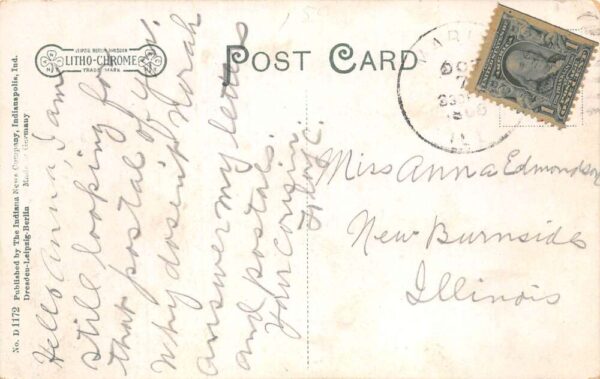 POST CARD
LEIPZIG BERLIN DRESDEN
LITHO-CHROME
TRADE MARK
No. D 1172 Published by The Indiana News Company, Indianapolis, Ind.
Dresden-Leipzig-Berlin Made in Germany
Hello Anna, I am
still looking for
that postal of you.
Why dosen't Norah
answer my letters
and postals.
Your cousin
Miss Anna Edmondson
New Burnside
Illinois
OCT